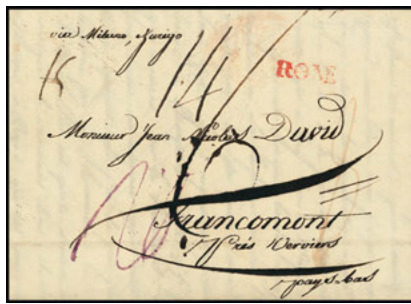 via Milano,
ROME
14
Monsieur Jean Nicolas David
Francomont
Près Verviers
pays bas